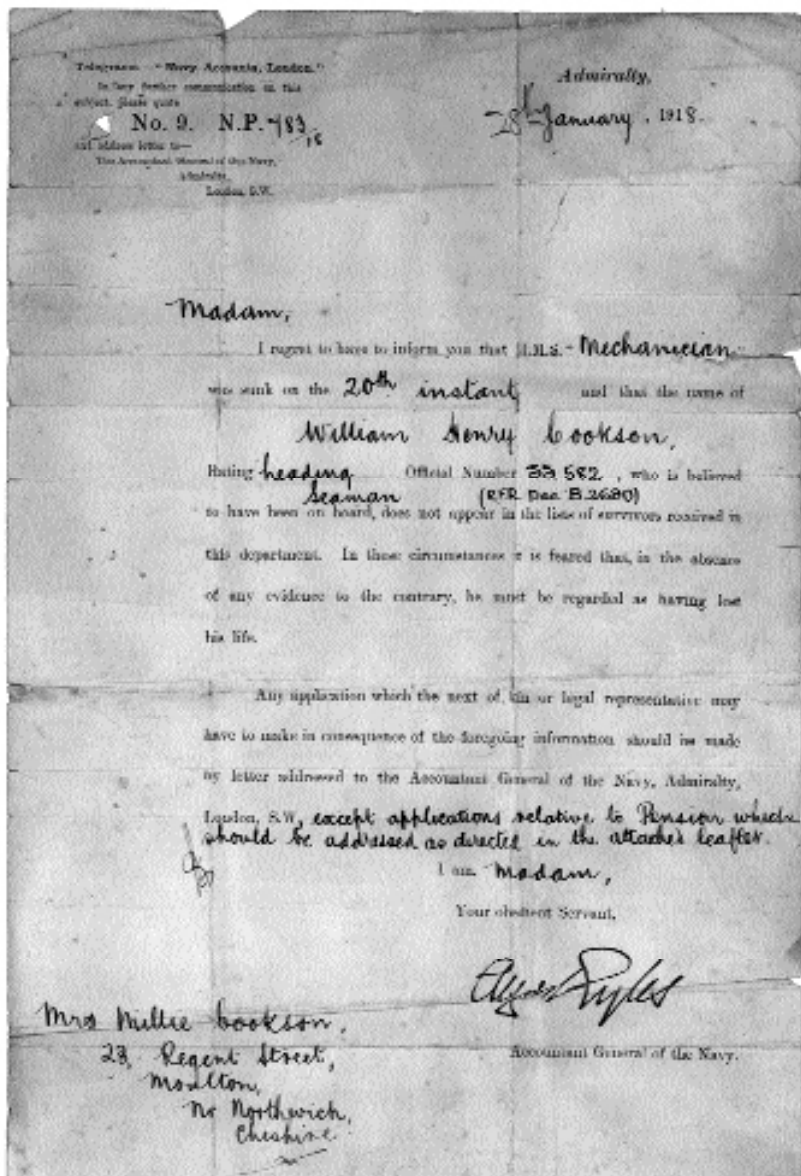 Telegrams—"Navy Accounts, London."
In any further communication on this
subject, please quote
No. 9. N.P. 483/18
and address letter to—
The Accountant General of the Navy,
Admiralty,
London, S.W.
Admiralty,
28th January, 1918.
Madam,
I regret to have to inform you that H.M.S. Mechanician
was sunk on the 20th instant, and that the name of
William Henry Cookson,
Rating Leading Official Number 33,582, who is believed
Seaman (RFR B.2680)
to have been on board, does not appear in the lists of survivors received in
this department. In these circumstances it is feared that, in the absence
of any evidence to the contrary, he must be regarded as having lost
his life.
Any application which the next of kin or legal representative may
have to make in consequence of the foregoing information should be made
by letter addressed to the Accountant General of the Navy, Admiralty,
London, S.W, except applications relative to Pension which
should be addressed as directed in the attached leaflet.
I am, Madam,
Your obedient Servant,
Accountant General of the Navy.
Mrs Millie Cookson,
23, Regent Street,
Moulton,
Nr Northwich,
Cheshire